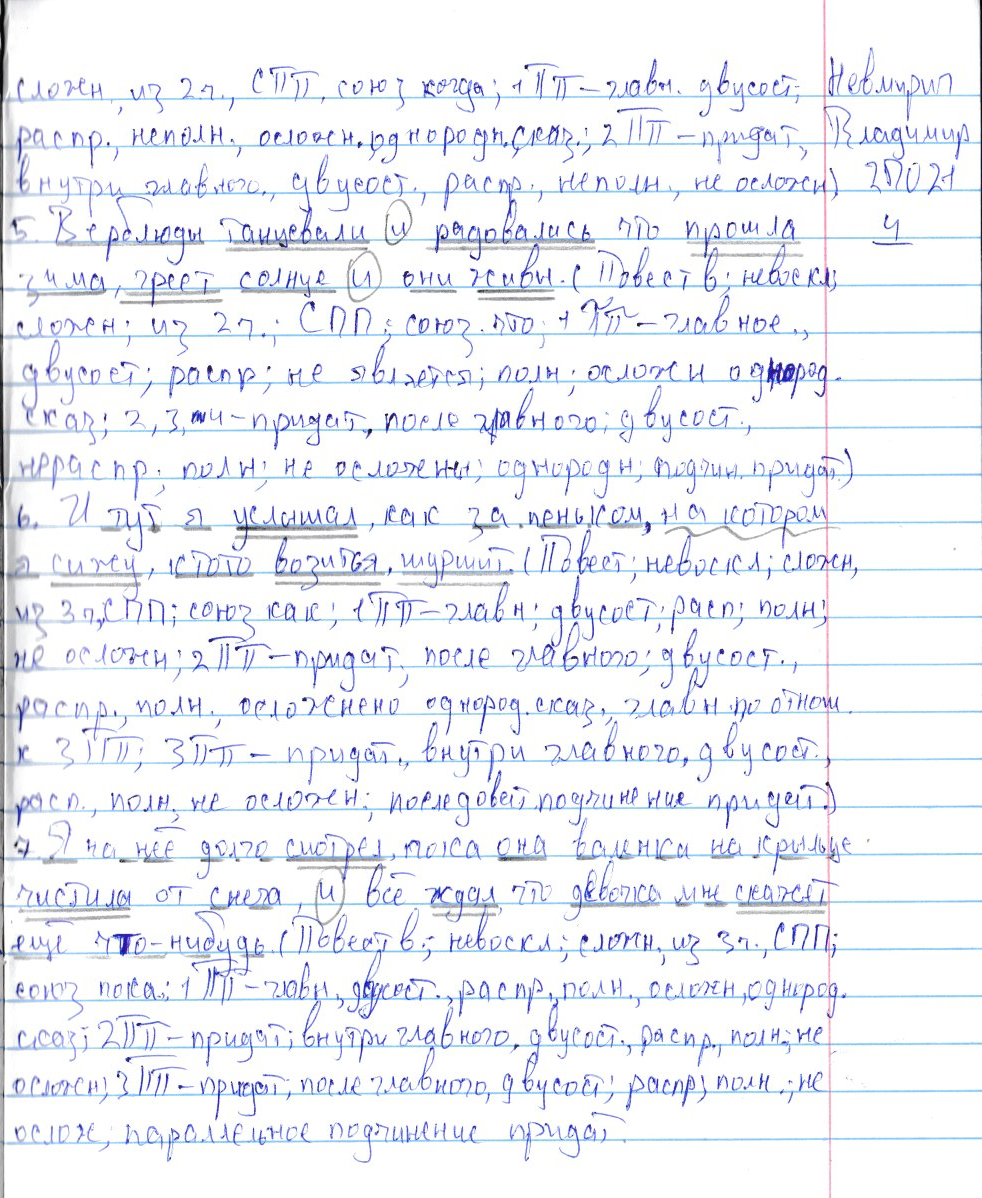 сложн, из 2 ч., СПП, союз когда; 1 ПП – главн. двусост; Невмирип
распр., неполн., осложн. однородн. сказ.; 2 ПП – придат, Владимир
внутри главного, двусост., распр., неполн., не осложн) 2П021
5. Верблюды танцевали и радовались что прошла 4
зима, греет солнце и они живы. (Повеств; невоскл;
сложн; из 2 ч.; СПП; союз что; 1 ПП – главное.,
двусост; распр; не является; полн; осложн однород.
сказ; 2, 3, 4 – придат, после главного; двусост.,
нераспр; полн; не осложены; однородн; подчин. придат.)
6. И тут я услышал, как за пеньком, на котором
я сижу, кто то возится, шуршит. (Повест; невоскл; сложн,
из 3 ч, СПП; союз как; 1 ПП – главн; двусост; расп; полн;
не осложн; 2 ПП – придат, после главного; двусост.,
распр., полн., осложнено однород. сказ., главн. по отнош.
к 3 ПП; 3 ПП – придат., внутри главного, двусост.,
расп., полн, не осложн; последоват. подчинение придат.)
7. Я на неё долго смотрел, пока она валенки на крыльце
чистила от снега, и всё ждал, что девочка мне скажет
ещё что-нибудь. (Повеств.; невоскл; сложн, из 3 ч., СПП;
союз пока; 1 ПП – главн, двусост., распр., полн., осложн, однород.
сказ; 2 ПП – придат; внутри главного, двусост., распр., полн.; не
осложн; 3 ПП – придат; после главного, двусост; распр; полн.; не
ослож; параллельное подчинение придат.